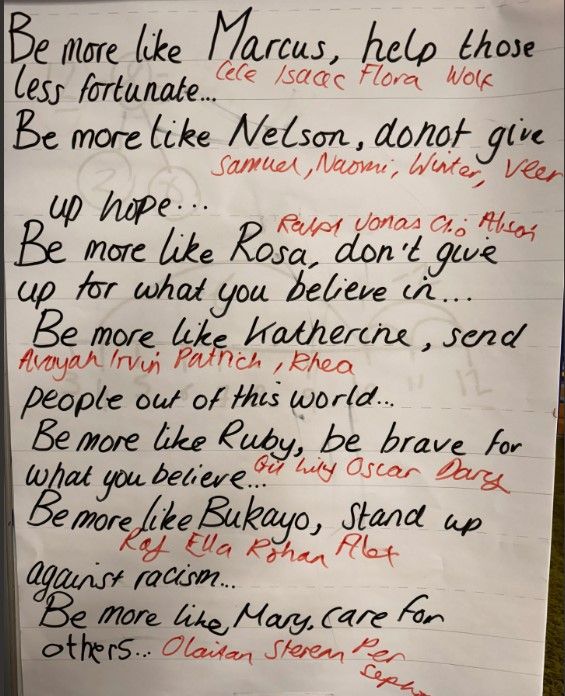 Be more like Marcus, help those
Cece Isaac Flora Wolf
less fortunate...
Be more like Nelson, do not give
Samuel, Naomi, Winter, Veer
up hope...
Ralph Jonas
Be more like Rosa, don't give
up for what you believe in...
Be more like Katherine, send
Irvin Patrich, Rhea
people out of this world...
Be more like Ruby, be brave for
Lily Oscar
what you believe...
Be more like Bukayo, stand up
Raf Ella Rohan Alex
against racism...
Be more like, Mary, care for
others...